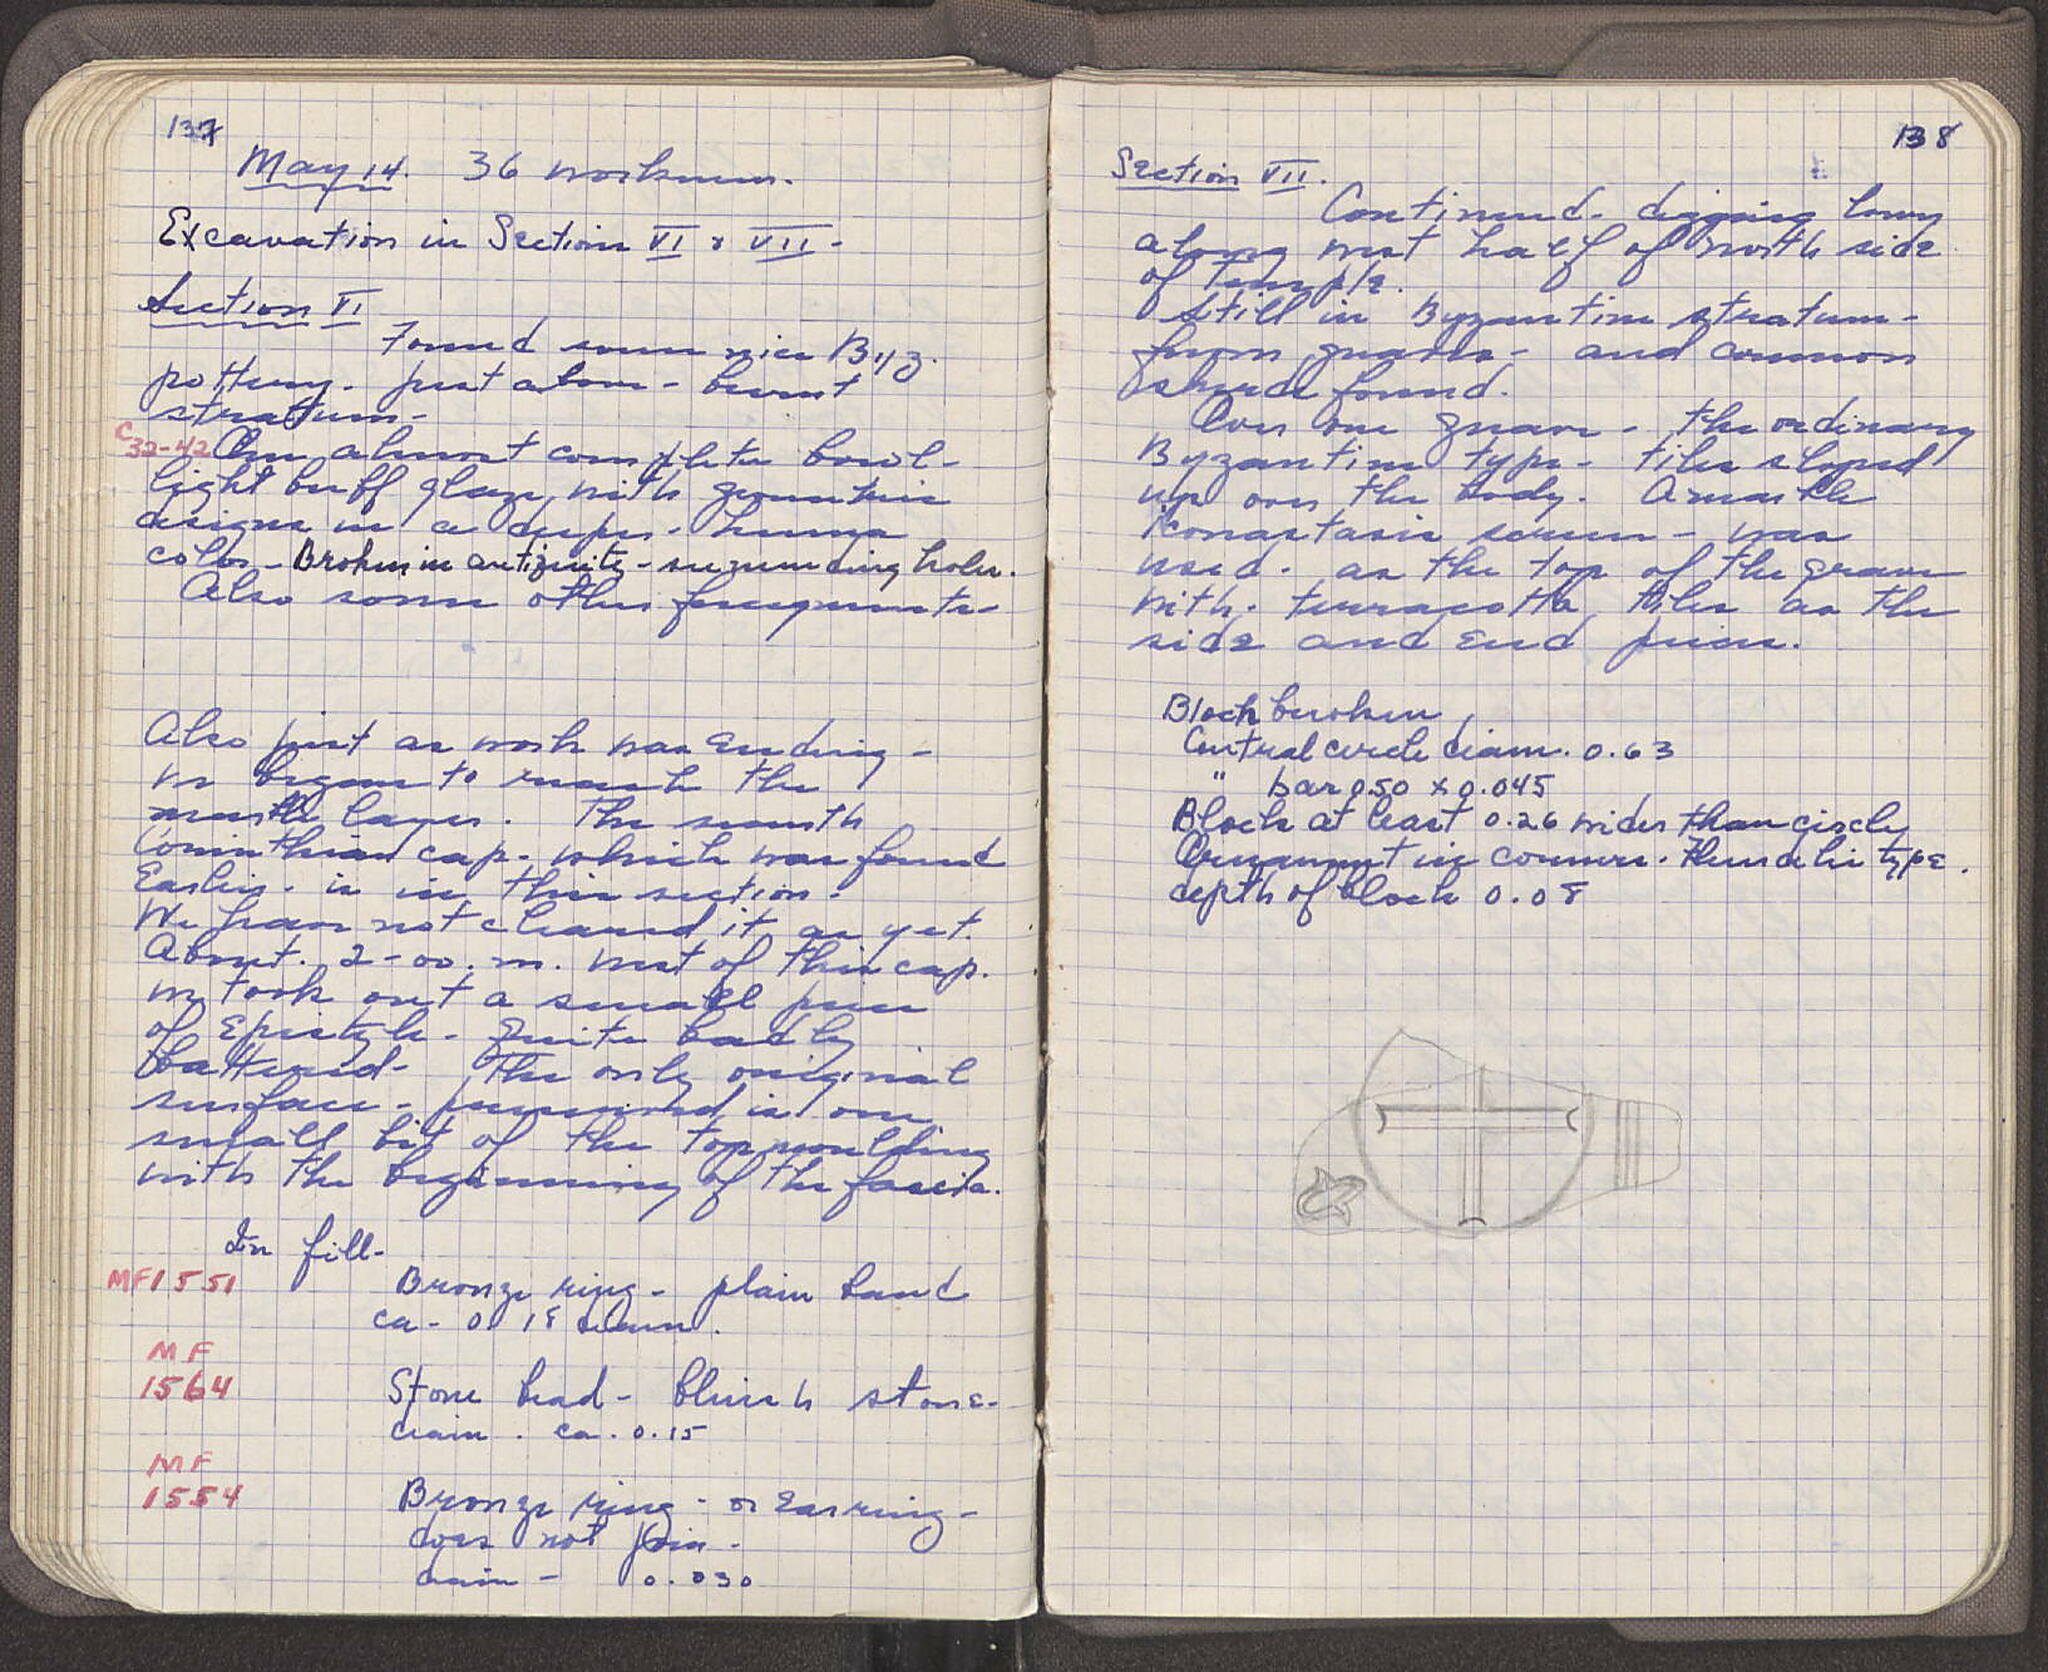 137
May 14. 36 workmen.
Excavation in Section VI & VII -
Section VI
Found some nice Byz.
pottery - just above - burnt
stratum -
C 32-42 One almost complete bowl -
light buff glaze with geometric
designs in a deeper - 
color - Broken in antiquity - mending holes.
Also some other fragments -
Also just as work was ending -
we began to reach the
marble layer. The
Corinthian cap. which was found
Earlier - is in this section.
We have not cleared it as yet.
About. 2-00. m. west of this cap.
we took out a small piece
of Epistyle - Quite badly
battered - The only original
surface - preserved is one
small bit of the top moulding
with the beginning of the fascia.
In fill -
MF 1551 Bronze ring - plain band
ca - 0 18 diam.
MF
1564 Stone bead - bluish stone -
diam. ca. 0.15
MF
1554 Bronze ring - or Earring -
does not join -
diam - 0.030
138
Section VII.
Continued - digging
along west half of North side
of Temple.
Still in Byzantine stratum -
from graves - and common
sherds found.
Over one grave - the ordinary
Byzantine type - tiles sloped
up over the body. A marble
iconastasis screen - was
used - as the top of the grave
with - terracotta tiles as the
side and End pieces.
Block broken
Central circle diam. 0.63
" bar 0.50 x 0.045
Block at least 0.26 wider than circle
Ornament in corners - type.
depth of block 0.08